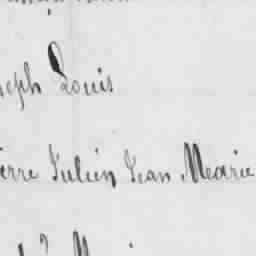 seph Louis
ierre Julien Jean Marie